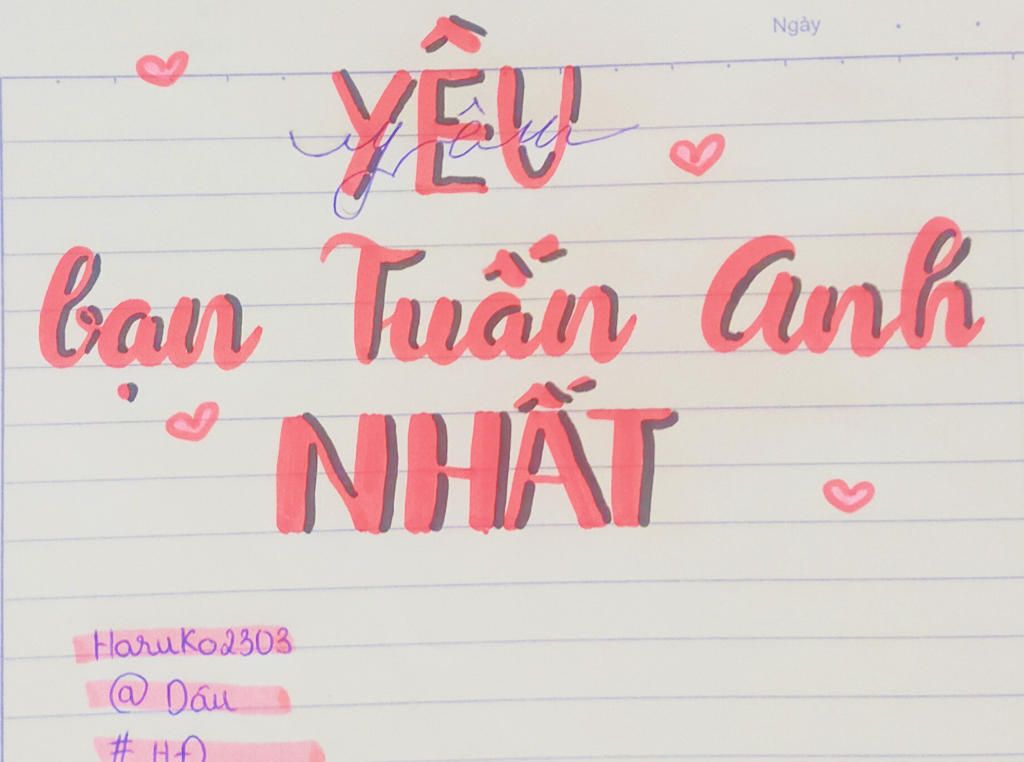 Ngày
YÊU
yêu
bạn Tuấn Anh
NHẤT
Haruko2303
@ Dấu
# HĐ